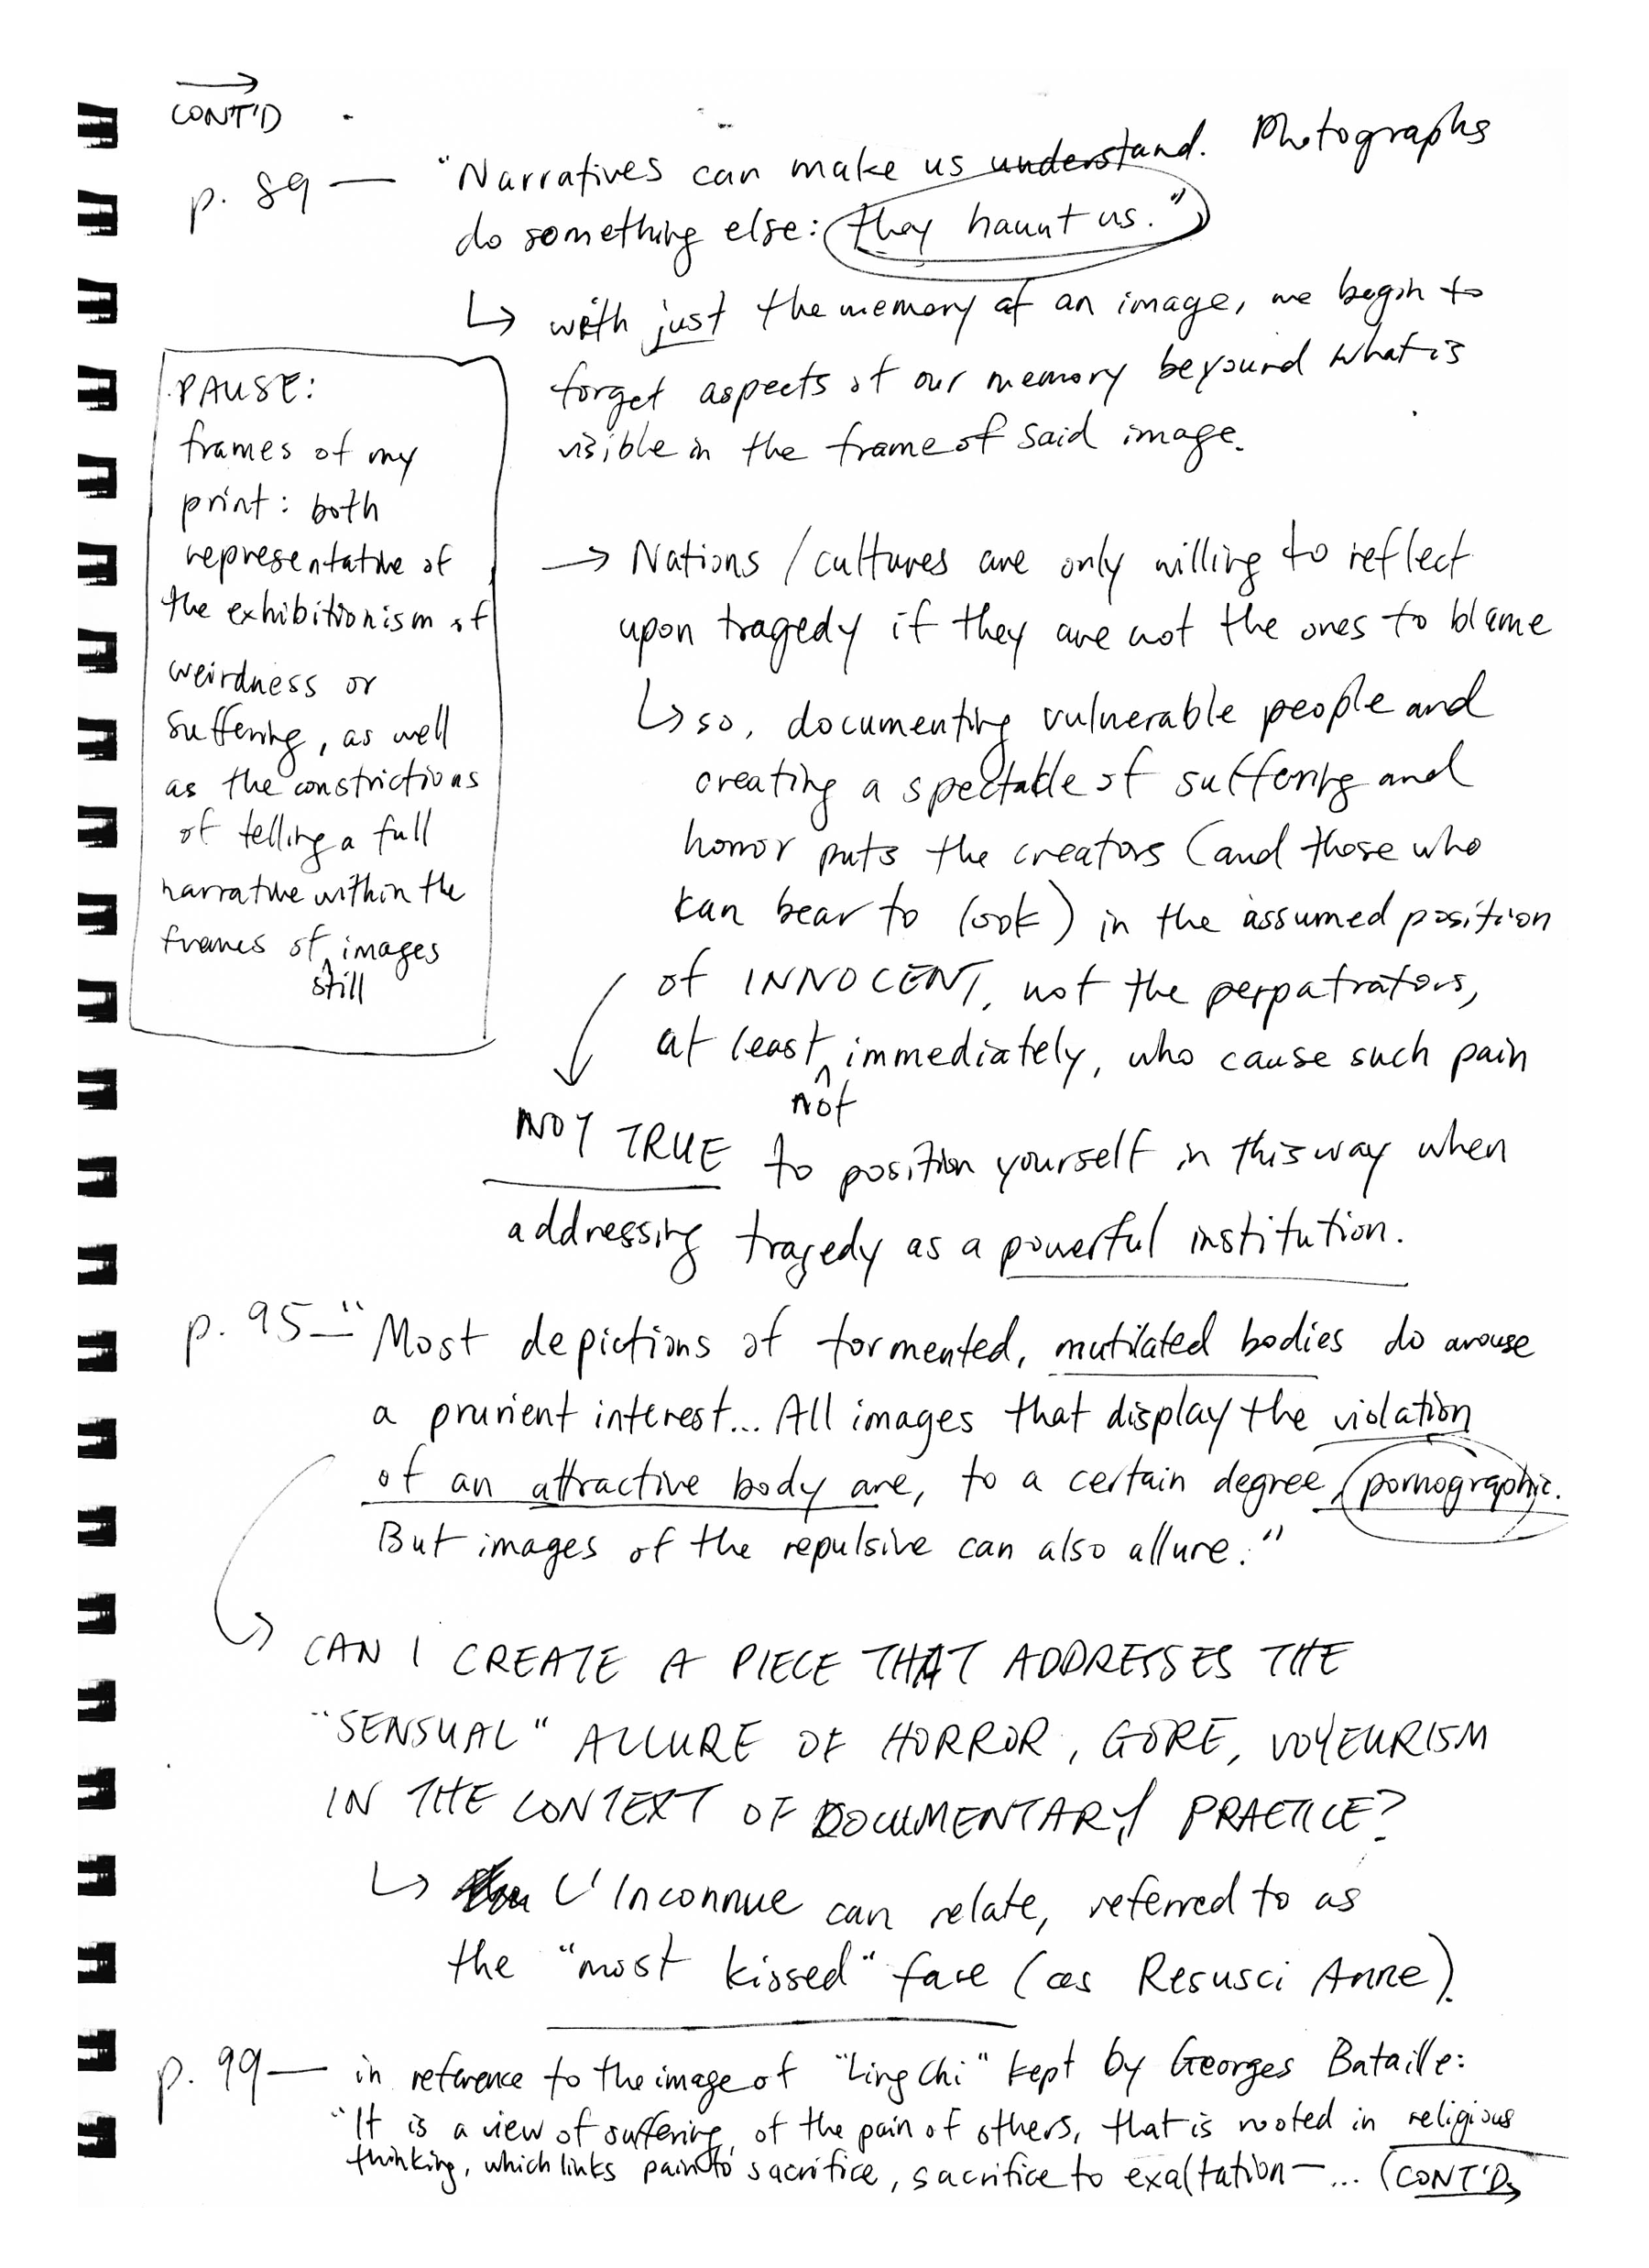 CONT'D
p. 89 — "Narratives can make us understand. Photographs
do something else: they haunt us."
↳ with just the memory of an image, we begin to
forget aspects of our memory beyound what is
visible in the frame of said image.
PAUSE:
frames of my
print: both
representative of
the exhibitionism of
weirdness or
suffering, as well
as the constrictions
of telling a full
narrative within the
frames of images
still
→ Nations / cultures are only willing to reflect
upon tragedy if they are not the ones to blame
↳ so, documenting vulnerable people and
creating a spectacle of suffering and
horror puts the creators (and those who
can bear to look) in the assumed position
of INNOCENT, not the perpatrators,
at least immediately, who cause such pain
not
NOT TRUE to position yourself in this way when
addressing tragedy as a powerful institution.
p. 95 — "Most depictions of tormented, mutilated bodies do arouse
a prurient interest... All images that display the violation
of an attractive body are, to a certain degree, pornographic.
But images of the repulsive can also allure."
↳ CAN I CREATE A PIECE THAT ADDRESSES THE
"SENSUAL" ALLURE OF HORROR, GORE, VOYEURISM
IN THE CONTEXT OF DOCUMENTARY PRACTICE?
↳ L'Inconnue can relate, referred to as
the "most kissed" face (as Resusci Anne).
p. 99 — in reference to the image of "Ling Chi" kept by Georges Bataille:
"It is a view of suffering, of the pain of others, that is rooted in religious
thinking, which links pain to sacrifice, sacrifice to exaltation — ... (CONT'D